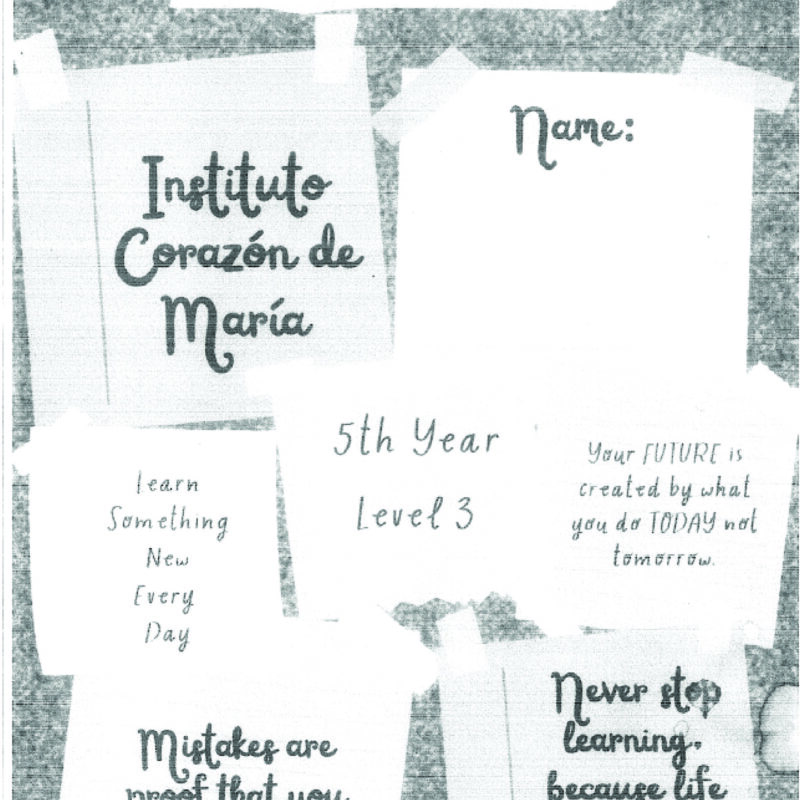 Instituto
Corazón de
María
Name:
5th Year
Level 3
learn
Something
New
Every
Day
Your FUTURE is
created by what
you do TODAY not
tomorrow.
Mistakes are
proof that you
Never stop
learning,
because life